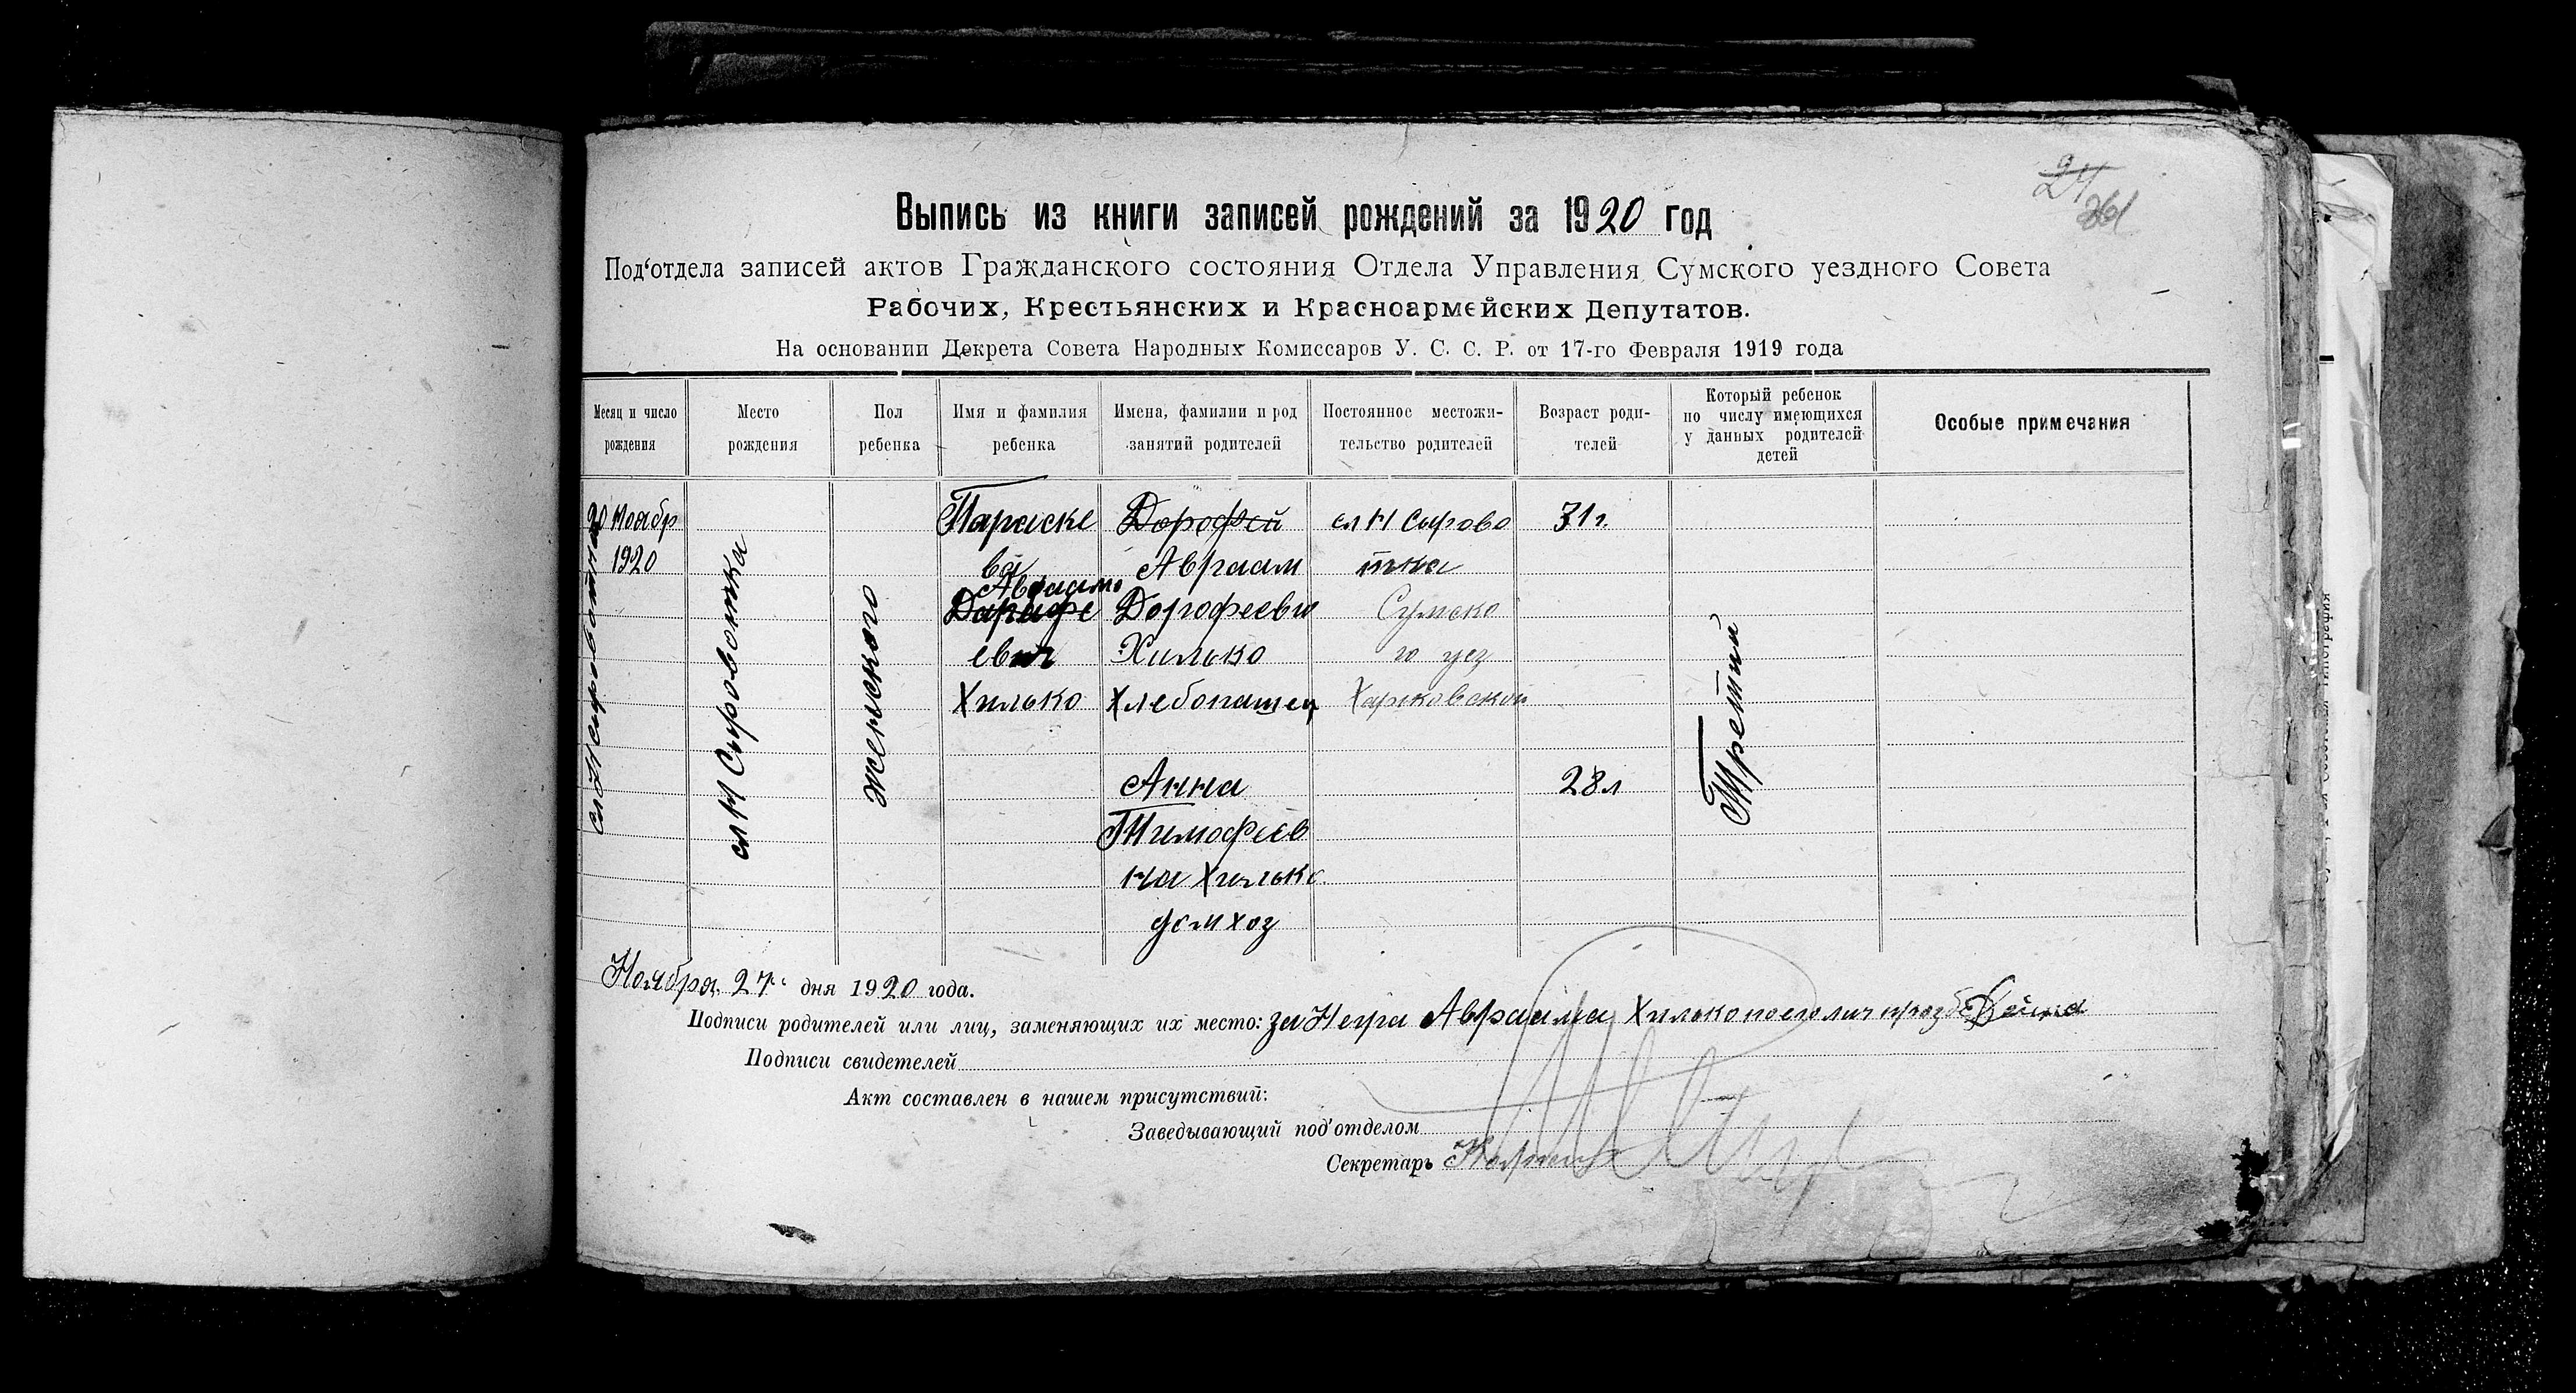 24
261
Выпись из книги записей рождений за 1920 год
Под'отдела записей актов Гражданского состояния Отдела Управления Сумского уездного Совета
Рабочих, Крестьянских и Красноармейских Депутатов.
На основании Декрета Совета Народных Комиссаров У. С. С. Р. от 17-го Февраля 1919 года
Месяц и число
рождения
Место
рождения
Пол
ребенка
Имя и фамилия
ребенка
Имена, фамилии и род
занятий родителей
Постоянное местожи-
тельство родителей
Возраст роди-
телей
Который ребенок
по числу имеющихся
у данных родителей
детей
Особые примечания
20 Ноябр
1920
сл Н Сыроватка
сл Н Сыроватка
женского
Параске
ва
Авраамо
Дорофе
евич
Хилько
Дорофей
Авраам
Дорофеевич
Хилько
Хлебопашец
Анна
Тимофеев
на Хилько
домхоз
сл Н Сырова
тка
Сумско
го уез
Харковской
31 г
28 л
Третий
Ноября 27 дня 1920 года.
Подписи родителей или лиц, заменяющих их место: за Негра Авраама Хилько
Подписи свидетелей
Акт составлен в нашем присутствий:
Заведывающий под'отделом
Секретарь
типография